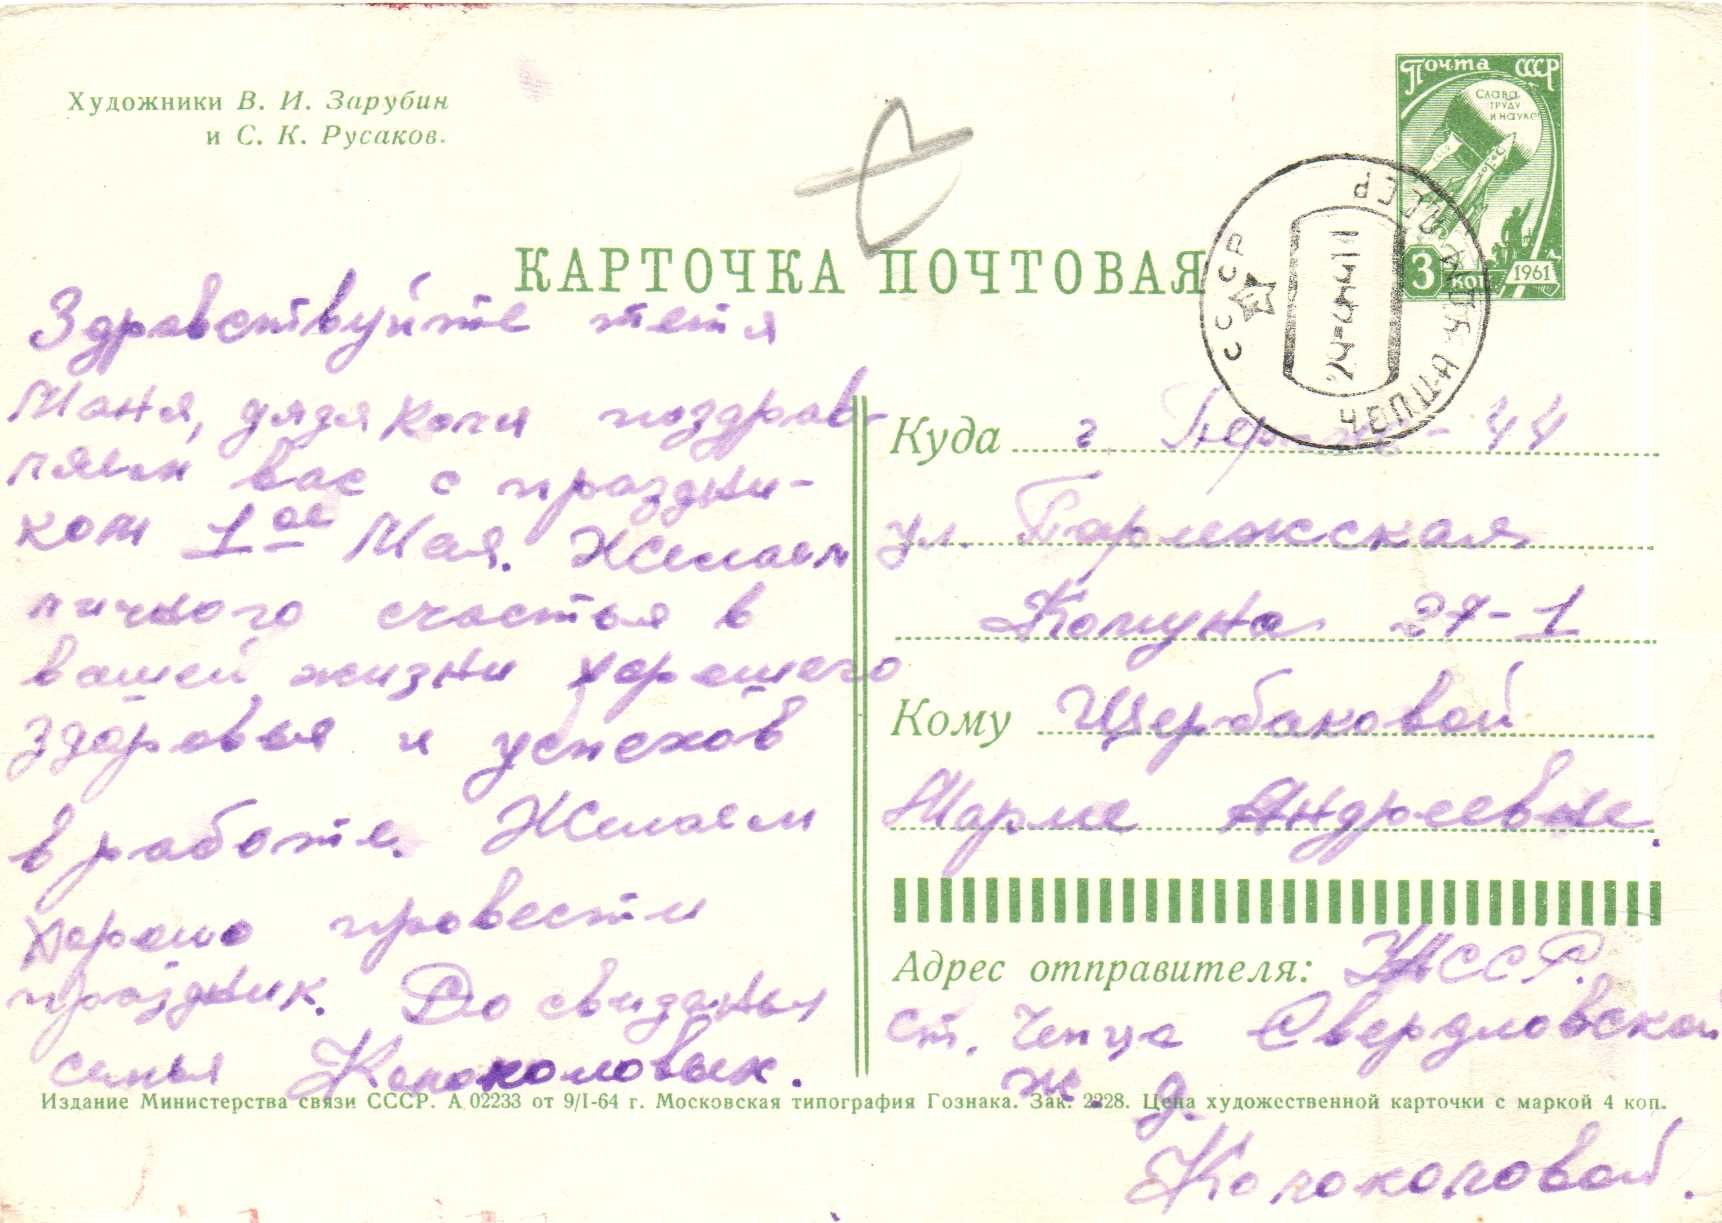 Художники В. И. Зарубин
и С. К. Русаков.
Почта СССР
Слава
труду
и науке
3 коп
1961
КАРТОЧКА ПОЧТОВАЯ
СССР
ЧЕПЦА
Здравствуйте тетя
Маня, дядя Коля поздрав-
ляем вас с праздни-
ком 1ое Мая. Желаем
личного счастья в
вашей жизни хорошего
здоровья и успехов
в работе. Желаем
хорошо провести
праздник. До свиданья
семья Колоколовых.
Куда г. - 44
ул. Парижская
Комуна 27-1
Кому Щербаковой
Марие Андреевне.
Адрес отправителя: УАССР.
ст. Чепца Свердловской
ж. д.
Колоколовой.
Издание Министерства связи СССР. А 02233 от 9/I-64 г. Московская типография Гознака. Зак. 2228. Цена художественной карточки с маркой 4 коп.